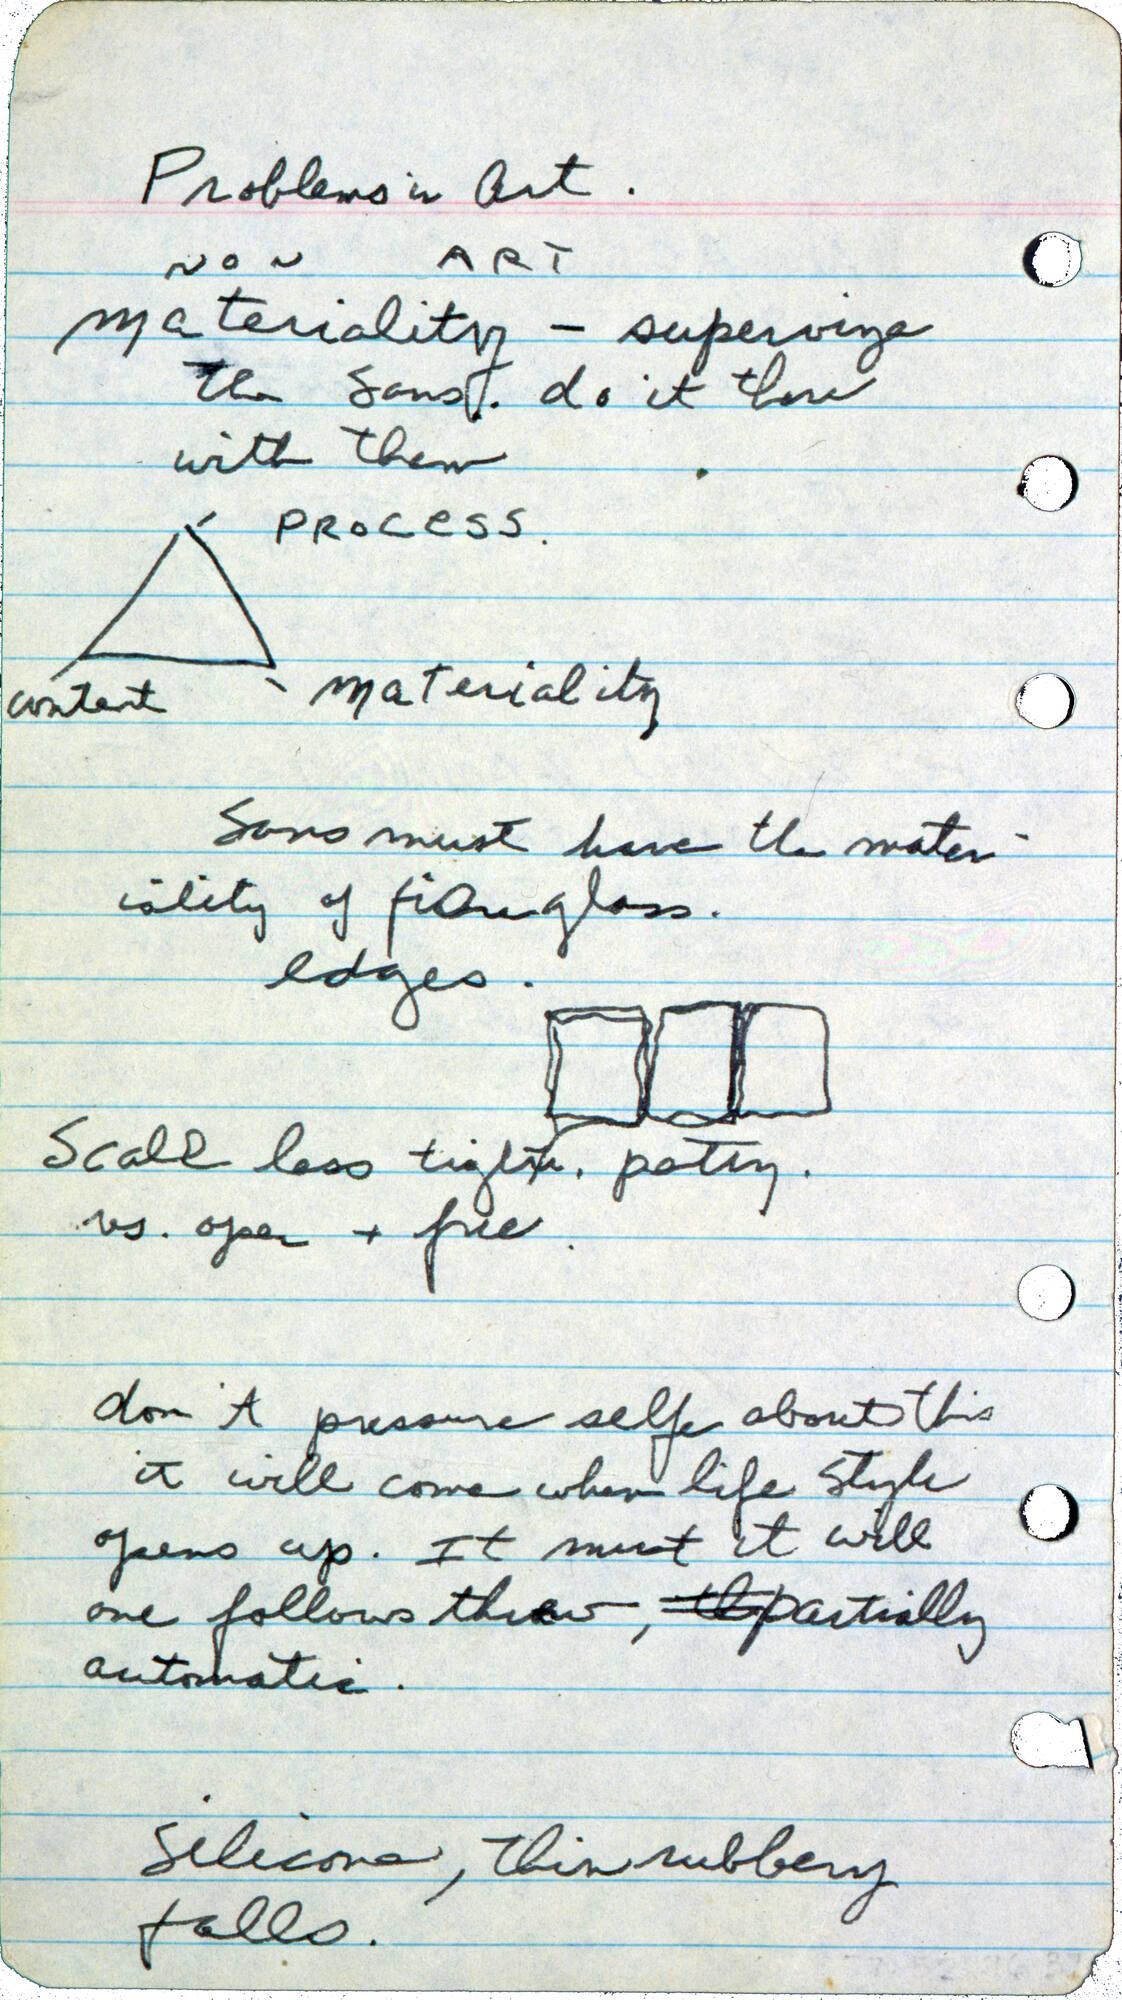 Problems in Art.
NON ART
Materiality - supervize
the Sans. do it there
with them
PROCESS.
content
materiality
Sans must have the mater-
iality of fiberglass.
edges.
Scale less tight.
vs. open + free.
don't pressure self about this
it will come when life style
opens up. It must it will
one follows threw, partially
automatic.
Silicone, thin rubbery
falls.